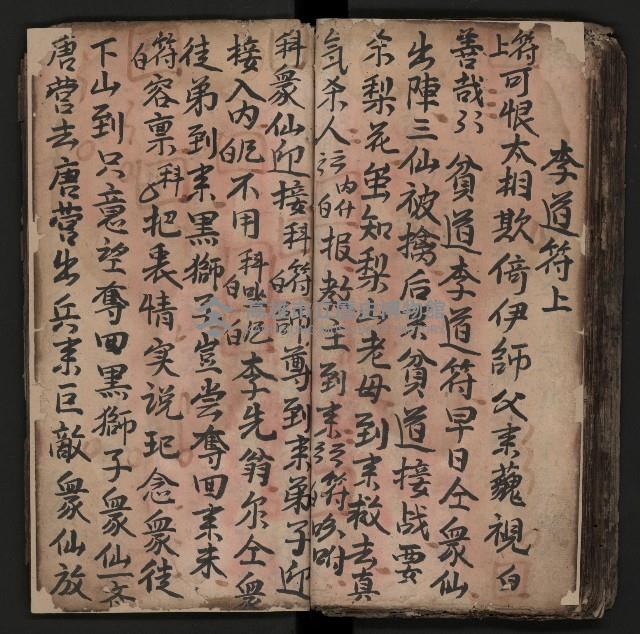 李道符上
符上可恨太相欺倚伊師父来藐視白
善哉 貧道李道符早日仝衆仙
出陣三仙被擒后来貧道接战要
杀梨花虽知梨 老母到来救去真
气杀人 内白 报教主到来 符白吩咐
科衆仙迎接科符白師尊到来弟子迎
接入内 不用科 白 李先翁尔仝衆
徒弟到来黑獅子岂尝奪回来未
符白容禀科 把裹情实说 念衆徒
下山到只意望奪回黑獅子衆仙一齐
唐营去唐营出兵来巨敵衆仙放
高雄市立歷史博物館